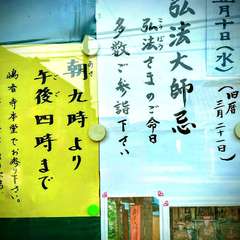 月十日(水)
(旧暦
三月二十一日)
弘法大師忌
こうぼう
弘法さまのご命日
多数ご参詣下さい
あさ
朝九時より
午後四時まで
寺本堂でお参り下さい。